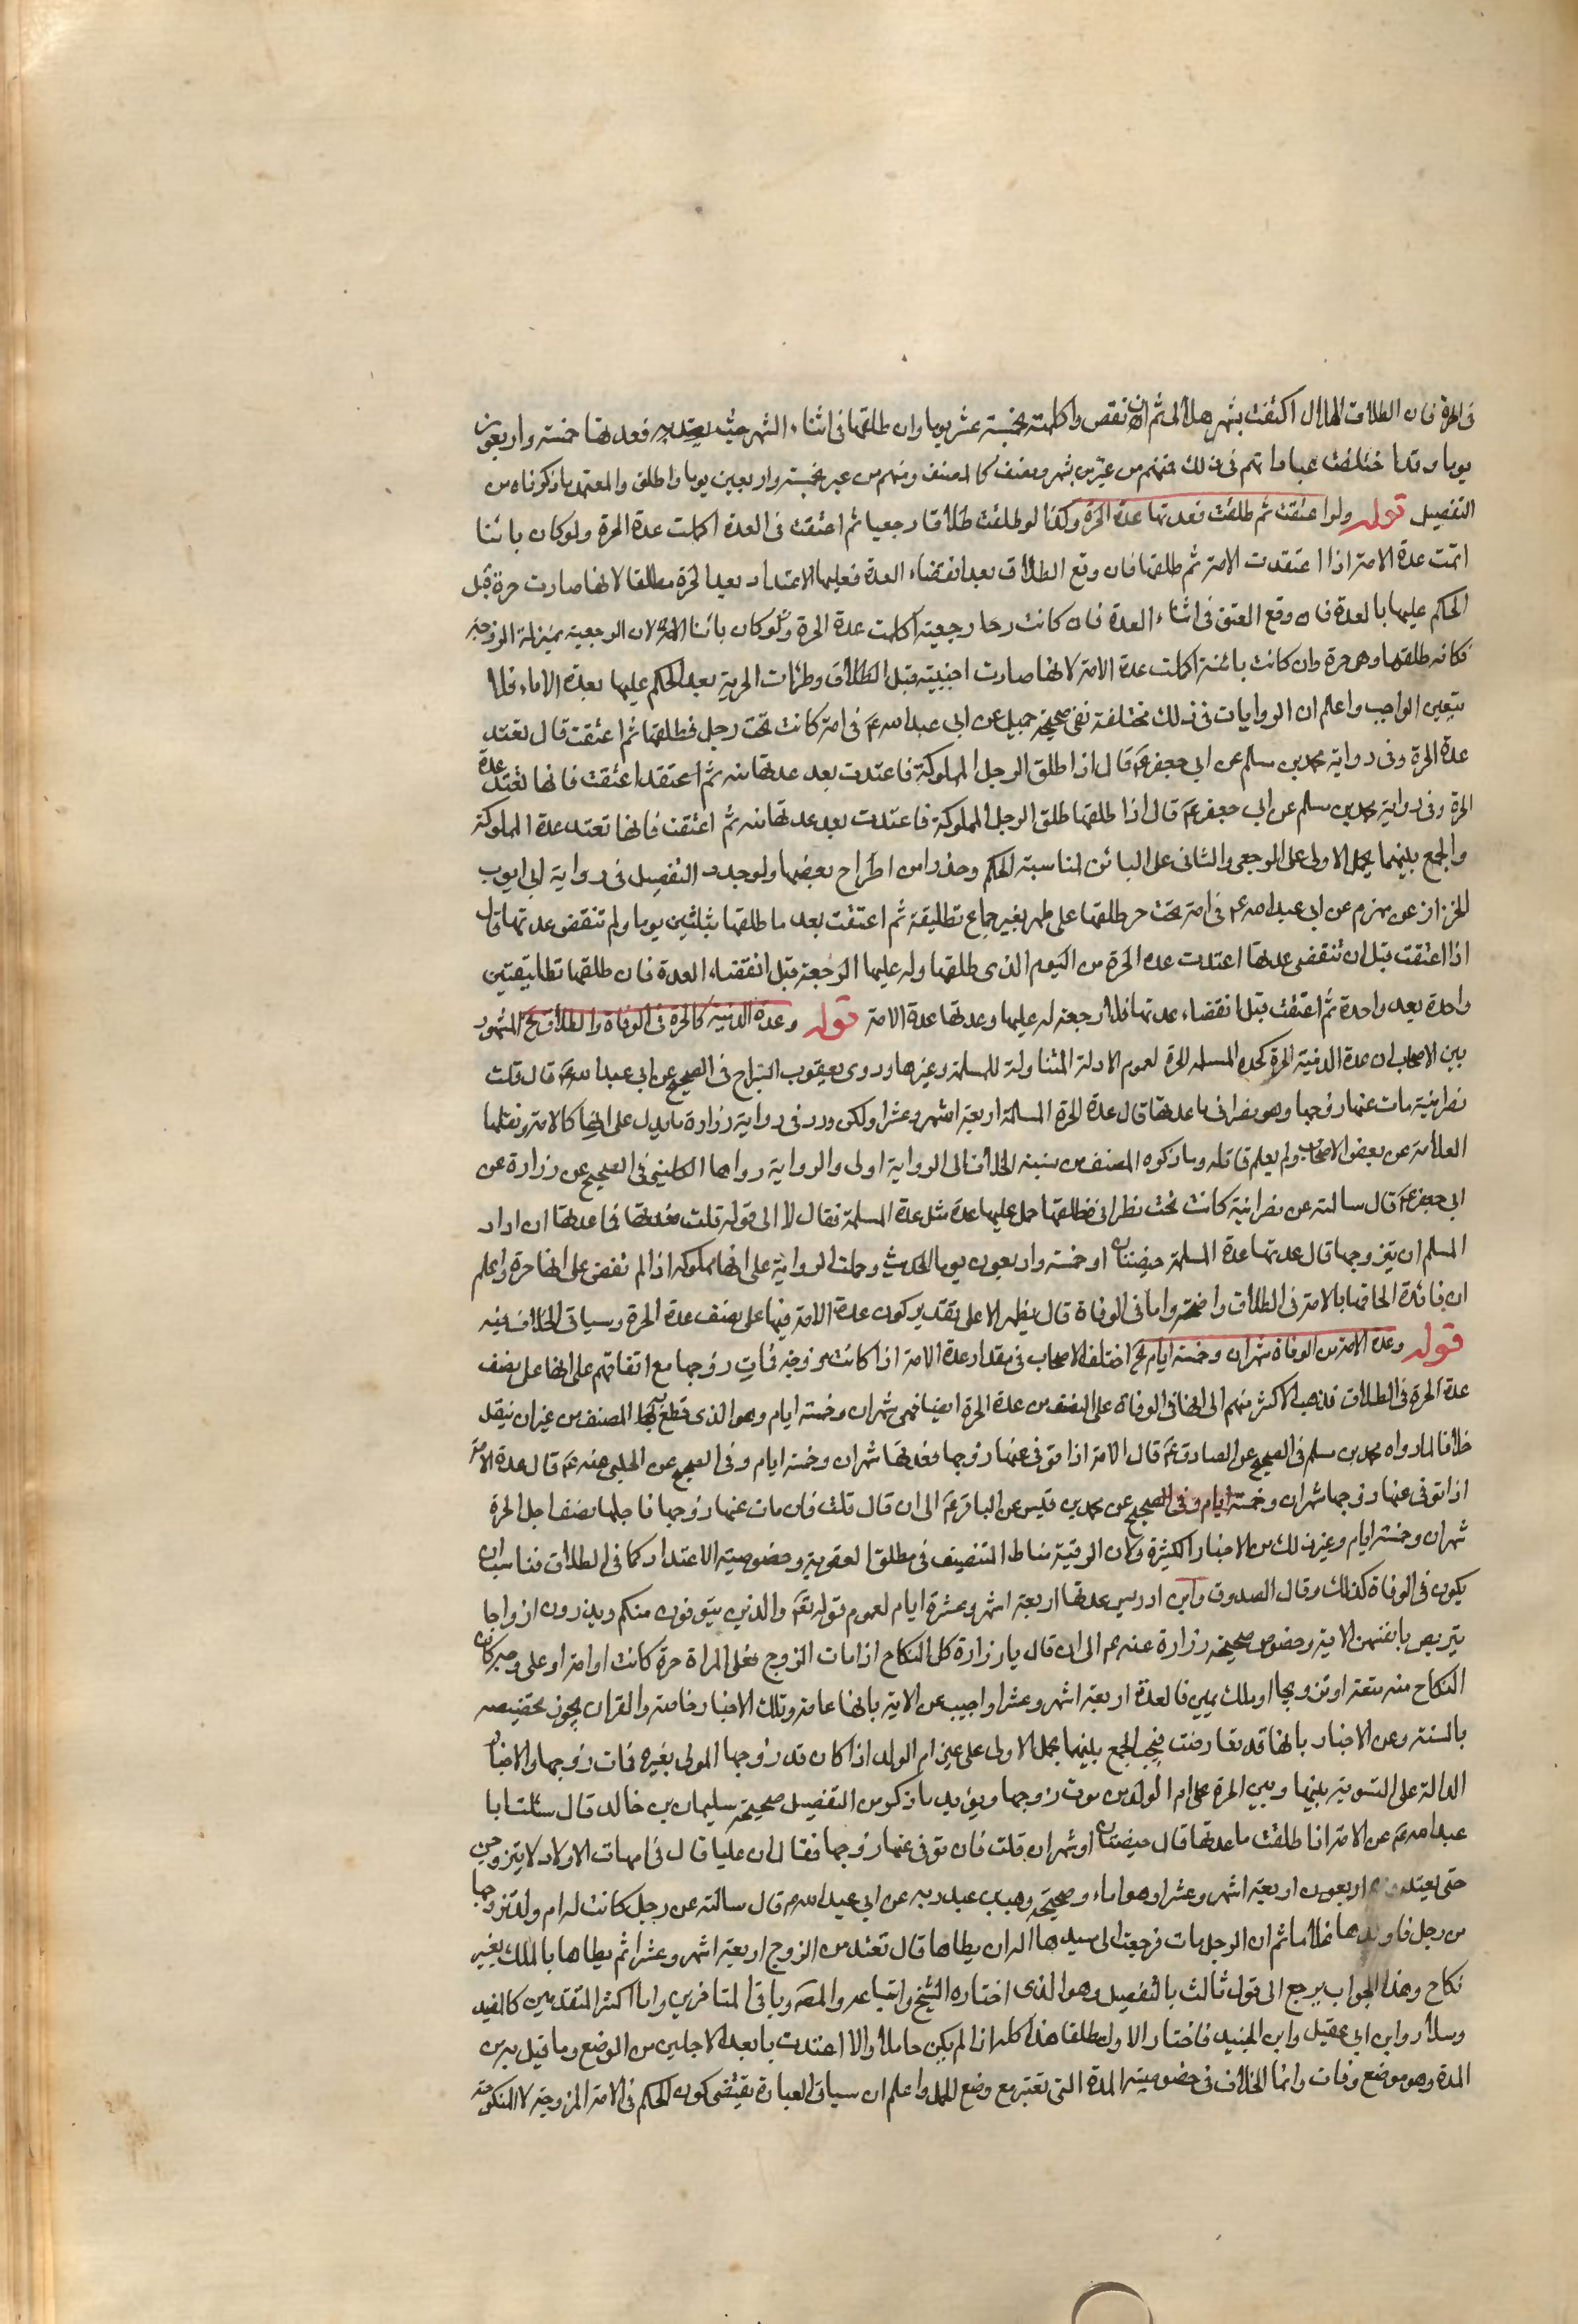 في الحرة فان الطلاق الهلال اكتفت بشهر هلالي ثم ان نقص واكملته بخمسة عشر يوما وان طلقها في اثناء الشهر حيث يعتد به فعدتها خمسة واربعون
يوما وقد اختلفت عباراتهم في ذلك فمنهم من عبر بشهر ونصف كالمصنف ومنهم من عبر بخمسة واربعين يوما واطلق والمعتمد ما ذكرناه من
التفصيل قوله ولو اعتقت ثم طلقت فعدتها عدة الحرة وكذا لو طلقت طلاقا رجعيا ثم اعتقت في العدة اكملت عدة الحرة ولو كان بائنا
اتمت عدة الامة اذا اعتقدت الامة ثم طلقها فان وقع الطلاق بعد انقضاء العدة فعليها الاعتداد بعد الحرة مطلقا لانها صارت حرة قبل
الحكم عليها بالعدة فان وقع العتق في اثناء العدة فان كانت رجعية اكملت عدة الحرة ولو كان بائنا لان الرجعية بمنزلة الزوجة
فكانه طلقها وهي حرة وان كانت بائنة اكملت عدة الامة لانها صارت اجنبية قبل الطلاق وطرأت الحرية بعد الحكم عليها بعدة الاماء فلا
يتعين الواجب واعلم ان الروايات في ذلك مختلفة ففي صحيحة جميل عن ابي عبد الله ع في امة كانت تحت رجل فطلقها ثم اعتقت قال تعتد
عدة الحرة وفي رواية محمد بن مسلم عن ابي جعفر ع قال اذا طلق الرجل المملوكة فاعتدت بعد عدتها منه ثم اعتقت فانها تعتد عدة
الحرة وفي رواية محمد بن مسلم عن ابي جعفر ع قال اذا طلقها طلق الرجل المملوكة فاعتدت بعد عدتها منه ثم اعتقت فانها تعتد عدة المملوكة
والجمع بينهما بحمل الاولى على الرجعي والثاني على البائن لمناسبة الحكم وحذرا من اطراح بعضها ولوجود التفصيل في رواية ابي ايوب
الخزاز عن مهزم عن ابي عبد الله ع في امة تحت حر طلقها على طهر بغير جماع تطليقة ثم اعتقت بعد ما طلقها بثلثين يوما ولم تنقض عدتها قال
اذا اعتقت قبل ان تنقضي عدتها اعتدت عدة الحرة من اليوم الذي طلقها وله عليها الرجعة قبل انقضاء العدة فان طلقها تطليقتين
واحدة بعد واحدة ثم اعتقت قبل انقضاء عدتها فلا رجعة له عليها وعدتها عدة الامة قوله وعدة الذمية كالحرة في الوفاة والطلاق الخ المشهور
بين الاصحاب ان عدة الذمية الحرة كعدة المسلمة الحرة لعموم الادلة المتناولة للمسلمة وغيرها وروى يعقوب السراج في الصحيح عن ابي عبد الله ع قال قلت
نصرانية مات عنها زوجها وهو نصراني ما عدتها قال عدة الحرة المسلمة اربعة اشهر وعشرا ولكن ورد في رواية زرارة ما يدل على انها كالامة ونقلها
العلامة عن بعض الاصحاب ولم يعلم قائله وما ذكره المصنف من نسبة الخلاف الى الرواية اولى والرواية رواها الكليني في الصحيح عن زرارة عن
ابي جعفر ع قال سالته عن نصرانية كانت تحت نصراني فطلقها هل عليها عدة مثل عدة المسلمة فقال لا الى قوله قلت فما عدتها ان اراد
المسلم ان يتزوجها قال عدتها عدة المسلمة حيضتان او خمسة واربعون يوما الحديث وحملت الرواية على انها مملوكة اذ لم تنص على انها حرة واعلم
ان فائدة الحاقها بالامة في الطلاق واضحة واما في الوفاة قال يظهر الا على تقدير كون عدة الامة فيها على نصف عدة الحرة وسياتي الخلاف فيه
قوله وعدة الامة من الوفاة شهران وخمسة ايام الخ اختلف الاصحاب في مقدار عدة الامة اذا كانت مزوجة فمات زوجها مع اتفاقهم على انها على نصف
عدة الحرة في الطلاق فذهب الاكثر منهم الى انها في الوفاة على النصف من عدة الحرة ايضا فهي شهران وخمسة ايام وهو الذي قطع به المصنف من غير ان ينقل
خلافا لما رواه محمد بن مسلم في الصحيح عن الصادق ع قال الامة اذا توفي عنها زوجها فعدتها شهران وخمسة ايام وفي الصحيح عن الحلبي عنه ع قال عدة الامة
اذا توفي عنها زوجها شهران وخمسة ايام وفي الصحيح عن محمد بن قيس عن الباقر ع الى ان قال قلت فان مات عنها زوجها فاجلها نصف اجل الحرة
شهران وخمسة ايام وغير ذلك من الاخبار الكثيرة ولان الرقية مناط التنصيف في مطلق العقوبة وخصوصية الاعتداد كما في الطلاق فناسب ان
يكون في الوفاة كذلك وقال الصدوق وابن ادريس عدتها اربعة اشهر وعشرة ايام لعموم قوله تعالى والذين يتوفون منكم ويذرون ازواجا
يتربصن بانفسهن الاية وخصوص صحيحة زرارة عنه ع الى ان قال يا زرارة كل النكاح اذا مات الزوج فعلى المراة حرة كانت او امة او على وجه كان
النكاح منه متعة او تزويجا او ملك يمين فالعدة اربعة اشهر وعشرا واجيب عن الاية بانها عامة وتلك الاخبار خاصة والقران يجوز تخصيصه
بالسنة وعن الاخبار بانها قد تعارضت فيجب الجمع بينهما بحمل الاولى على غير ام الولد اذا كان قد زوجها المولى بغيره فمات زوجها والاخبار
الدالة على التسوية بينها وبين الحرة على ام الولد من موت زوجها ويؤيد ما ذكر من التفصيل صحيحة سليمان بن خالد قال سئلت ابا
عبد الله ع عن الامة اذا طلقت ما عدتها قال حيضتان او شهران قلت فان توفي عنها زوجها فقال ان عليا قال في امهات الاولاد لا يتزوجن
حتى يعتددن اربعة اشهر وعشرا وهو اماء وصحيحة وهب بن عبد ربه عن ابي عبد الله ع قال سالته عن رجل كانت له ام ولد تزوجها
من رجل فاولدها غلاما ثم ان الرجل مات فرجعت الى سيدها اله ان يطاها قال تعتد من الزوج اربعة اشهر وعشرا ثم يطاها بالملك بغير
نكاح وهذا الجواب يرجع الى قول ثالث بالتفصيل وهو الذي اختاره الشيخ واتباعه والمصنف وباقي المتاخرين واما اكثر المتقدمين كالمفيد
وسلار وابن ابي عقيل وابن الجنيد فاختار الاول مطلقا هذا كله اذا لم يكن حاملا والا اعتدت بابعد الاجلين من الوضع وما قيل به من
المدة وهو موضع وفاق وانما الخلاف في خصوصية المدة التي تعتبر مع وضع الحمل واعلم ان سياق العبارة يقتضي كون الحكم في الامة المزوجة لا المنكوحة